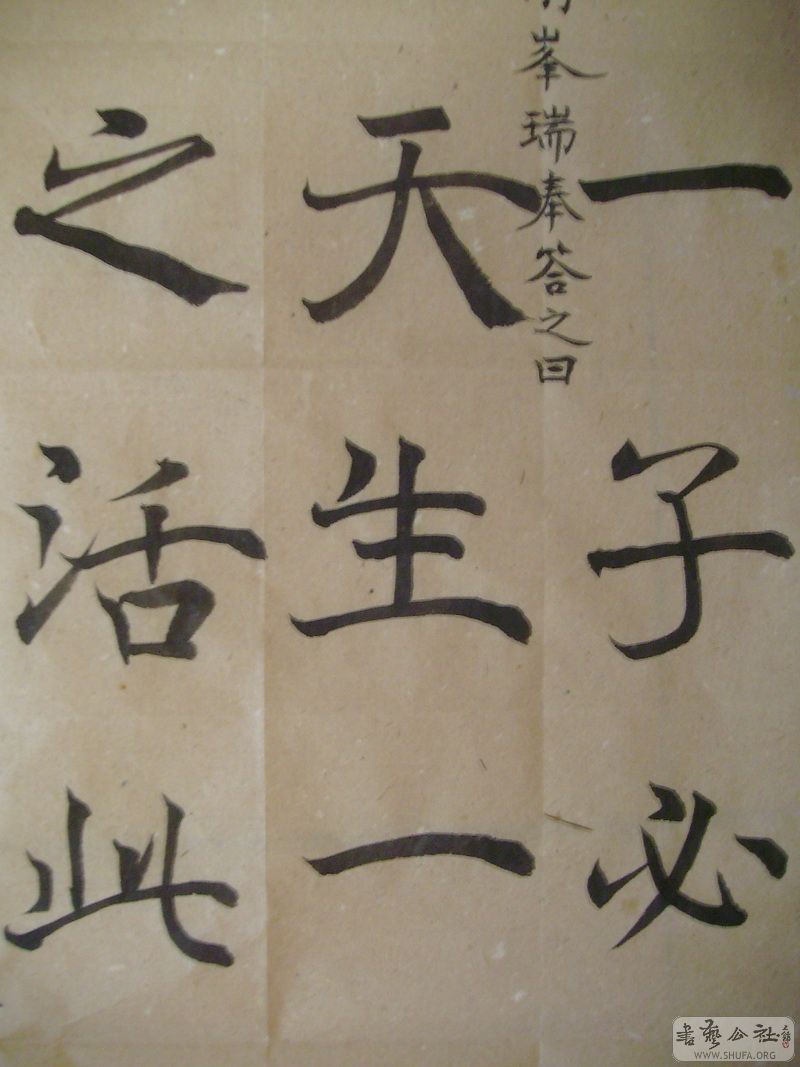 一子必
峯瑞奉答之曰
天生一
之活此
書藝公社
WWW.SHUFA.ORG